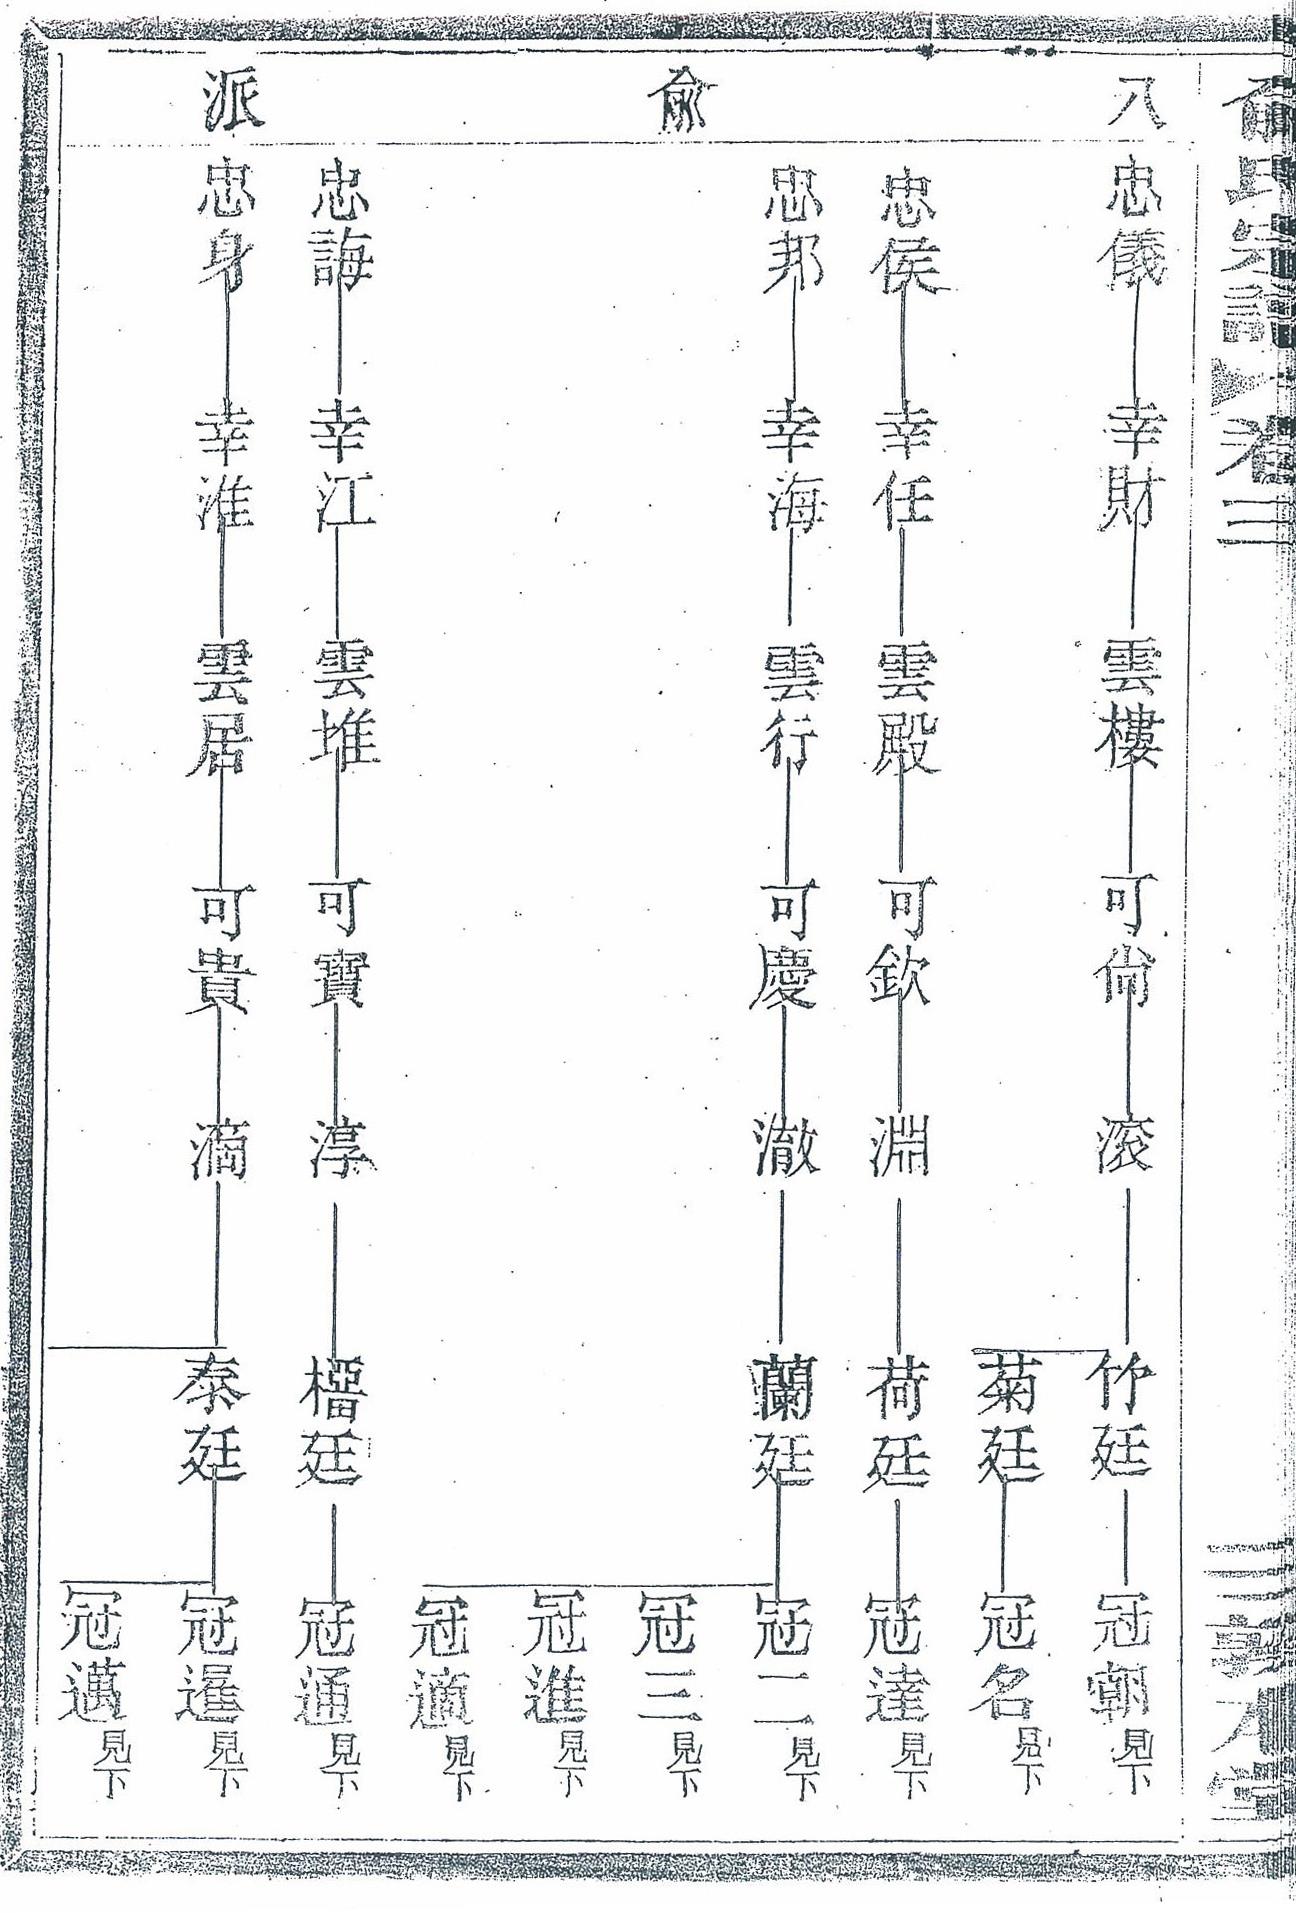 俞氏宗譜 卷三
敦本堂
八俞派
忠儀 幸財 雲樓 可尙 滚 竹廷 冠朝 見下
菊廷 冠名 見下
忠侯 幸任 雲殿 可欽 淵 荷廷 冠達 見下
忠邦 幸海 雲行 可慶 澈 蘭廷 冠二 見下
冠三 見下
冠進 見下
冠適 見下
忠誨 幸江 雲堆 可寶 淳 廷 冠通 見下
忠身 幸淮 雲居 可貴 滴 泰廷 冠暹 見下
冠邁 見下